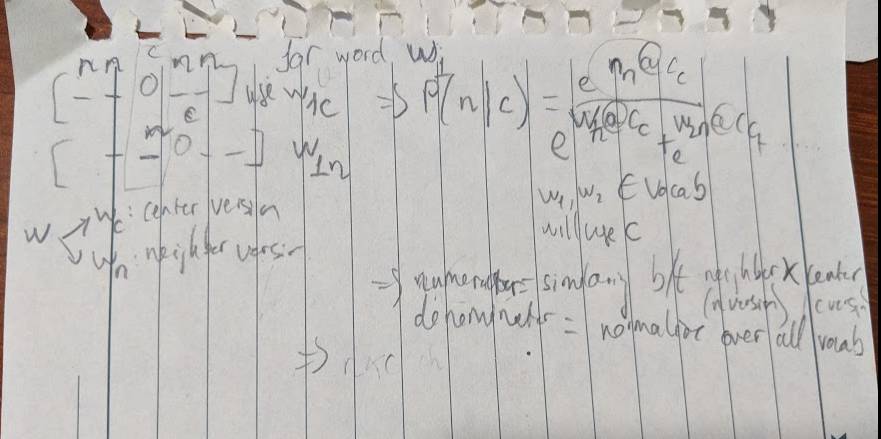 n n c n n for word w1
[ _ _ O _ _ ] use w1c => P(n|c) = e^{n_n @ c_c} / e^{w1n @ c_c} + e^{w2n @ c_c} + .....
n c
[ _ _ O _ _ ] w1n
w1, w2 ∈ vocab
will use c
w wc: center version
wn: neighbor version
=> numerator = similarity b/t neighbor x center
(n version) (c version)
denominator = normalize over all vocab
=>